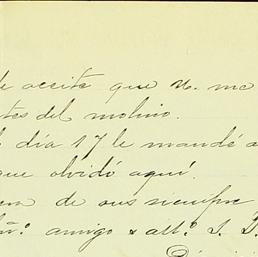 de aceite que U. me
tes del molino.
día 17 le mandé a
que olvidó aquí.
de sus siempre
amigo